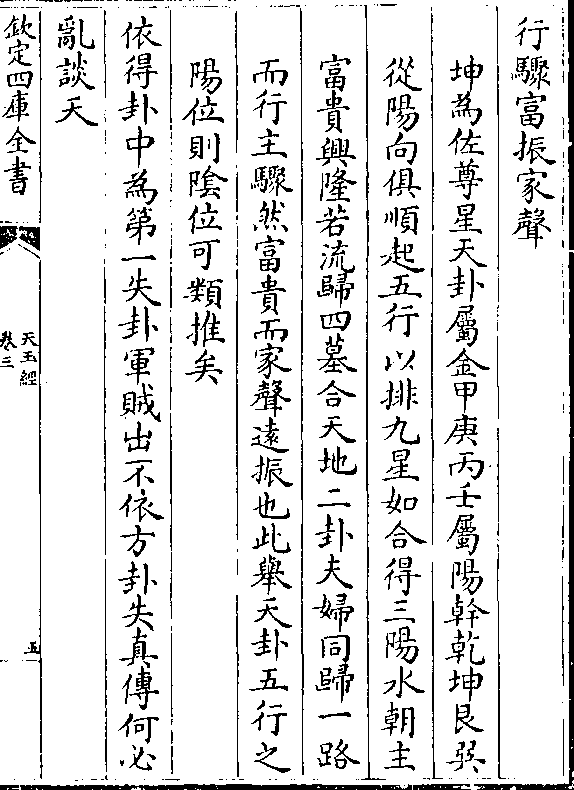 行驟富振家聲
坤為佐尊星天卦屬金甲庚丙壬屬陽幹乾坤艮巽
從陽向俱順起五行以排九星如合得三陽水朝主
富貴興隆若流歸四墓合天地二卦夫婦同歸一路
而行主驟然富貴而家聲遠振也此舉天卦五行之
陽位則陰位可類推矣
依得卦中為第一失卦軍賊出不依方卦失真傳何必
亂談天
欽定四庫全書
天玉經
卷三
五